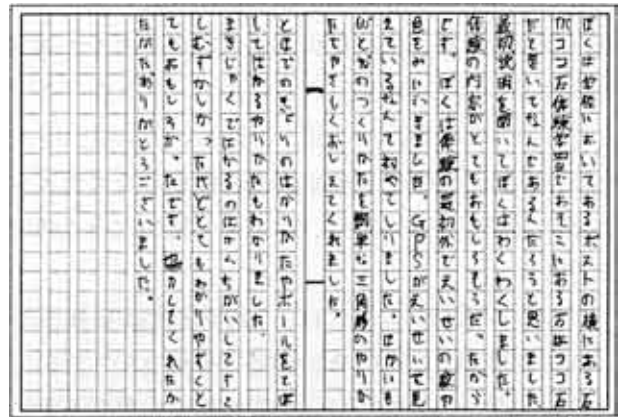 ぼくは世位においてあるポストの横にある石
がココ石体験学習であそこにある石はココ石
だと書いてなんであるんだろうと思いました
最初説明を聞いてぼくはわくわくしました。
体験の内容がとてもおもしろそうだったから
です。ぼくは体験の最初がでえいせいの数や
色をみにいきました。GPSがえいせいで見
えているなんて初めてしりました。はかいも
ひと方のつくりかたを簡単な三角形のやりか
たでやさしくおしえてくれました。
とほでのきょりのはかりかたやポールをてば
してはかるやりかたもわかりました。
まきじゃくではかるのはかんちがいしてすこ
しむずかしかったけどとてもわかりやすくと
てもおもしろかったです。協力してくれたか
たがたありがとうございました。